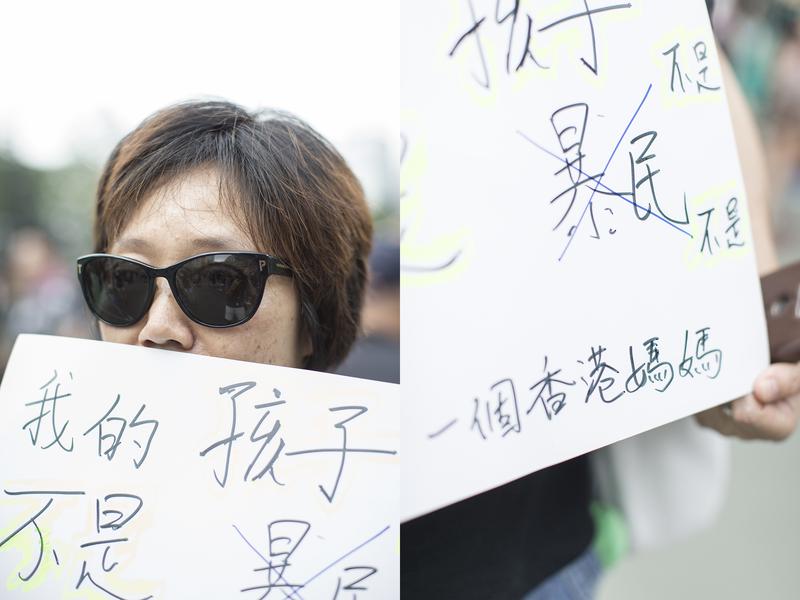 我的孩子
不是暴民
孩子
不是
暴民
不是
一個香港媽媽